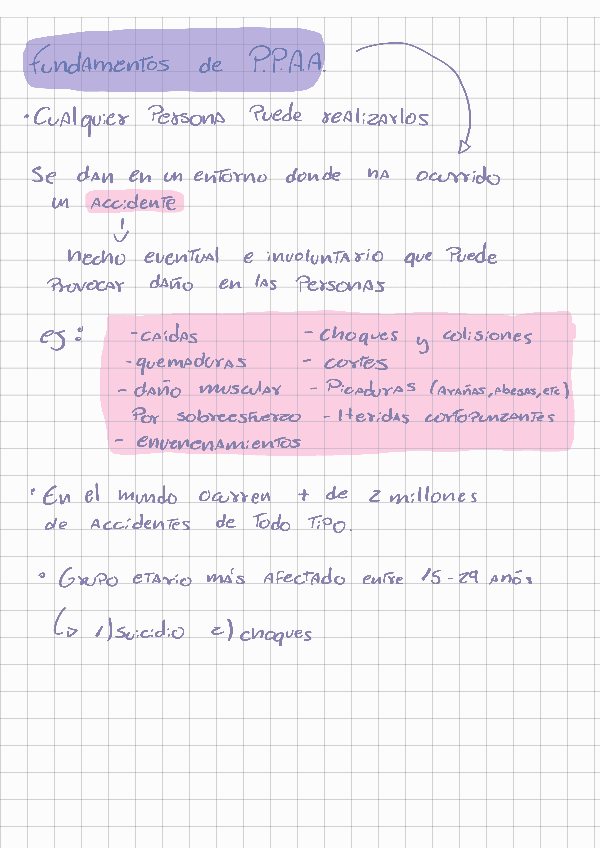 Fundamentos de P.P.A.A.
• Cualquier persona puede realizarlos
Se dan en un entorno donde ha ocurrido
un accidente
hecho eventual e involuntario que puede
provocar daño en las personas
ej:
- caídas
- quemaduras
- daño muscular
por sobreesfuerzo
- envenenamientos
- choques y colisiones
- cortes
- Picaduras (arañas, abejas, etc)
- Heridas cortopunzantes
• En el mundo ocurren + de 2 millones
de accidentes de todo tipo.
• Grupo etario más afectado entre 15-29 años
1) suicidio 2) choques